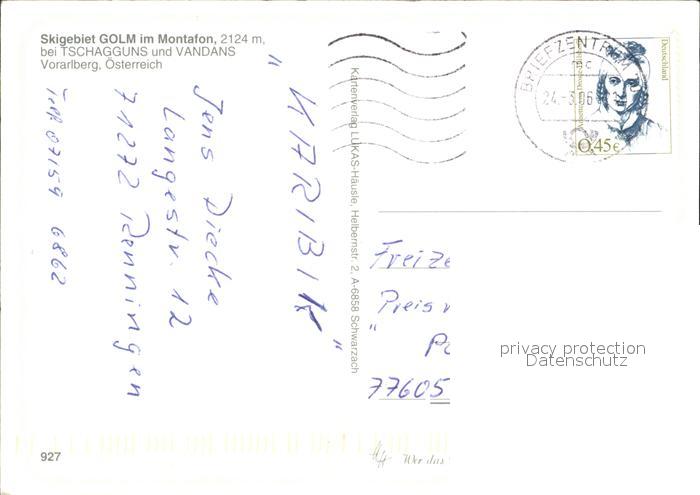 Skigebiet GOLM im Montafon, 2124 m,
bei TSCHAGGUNS und VANDANS
Vorarlberg, Österreich
"KARIBIK"
Jens Diecke
Langestr. 12
71272 Renningen
Tel. 07159 6862
927
Kartenverlag LUKAS-Häusle, Helbernstr. 2, A-6858 Schwarzach
BRIEFZENTRUM
24.-3.06
Deutschland
0,45€
Freize
Preis
"
77605
privacy protection
Datenschutz
Wer das